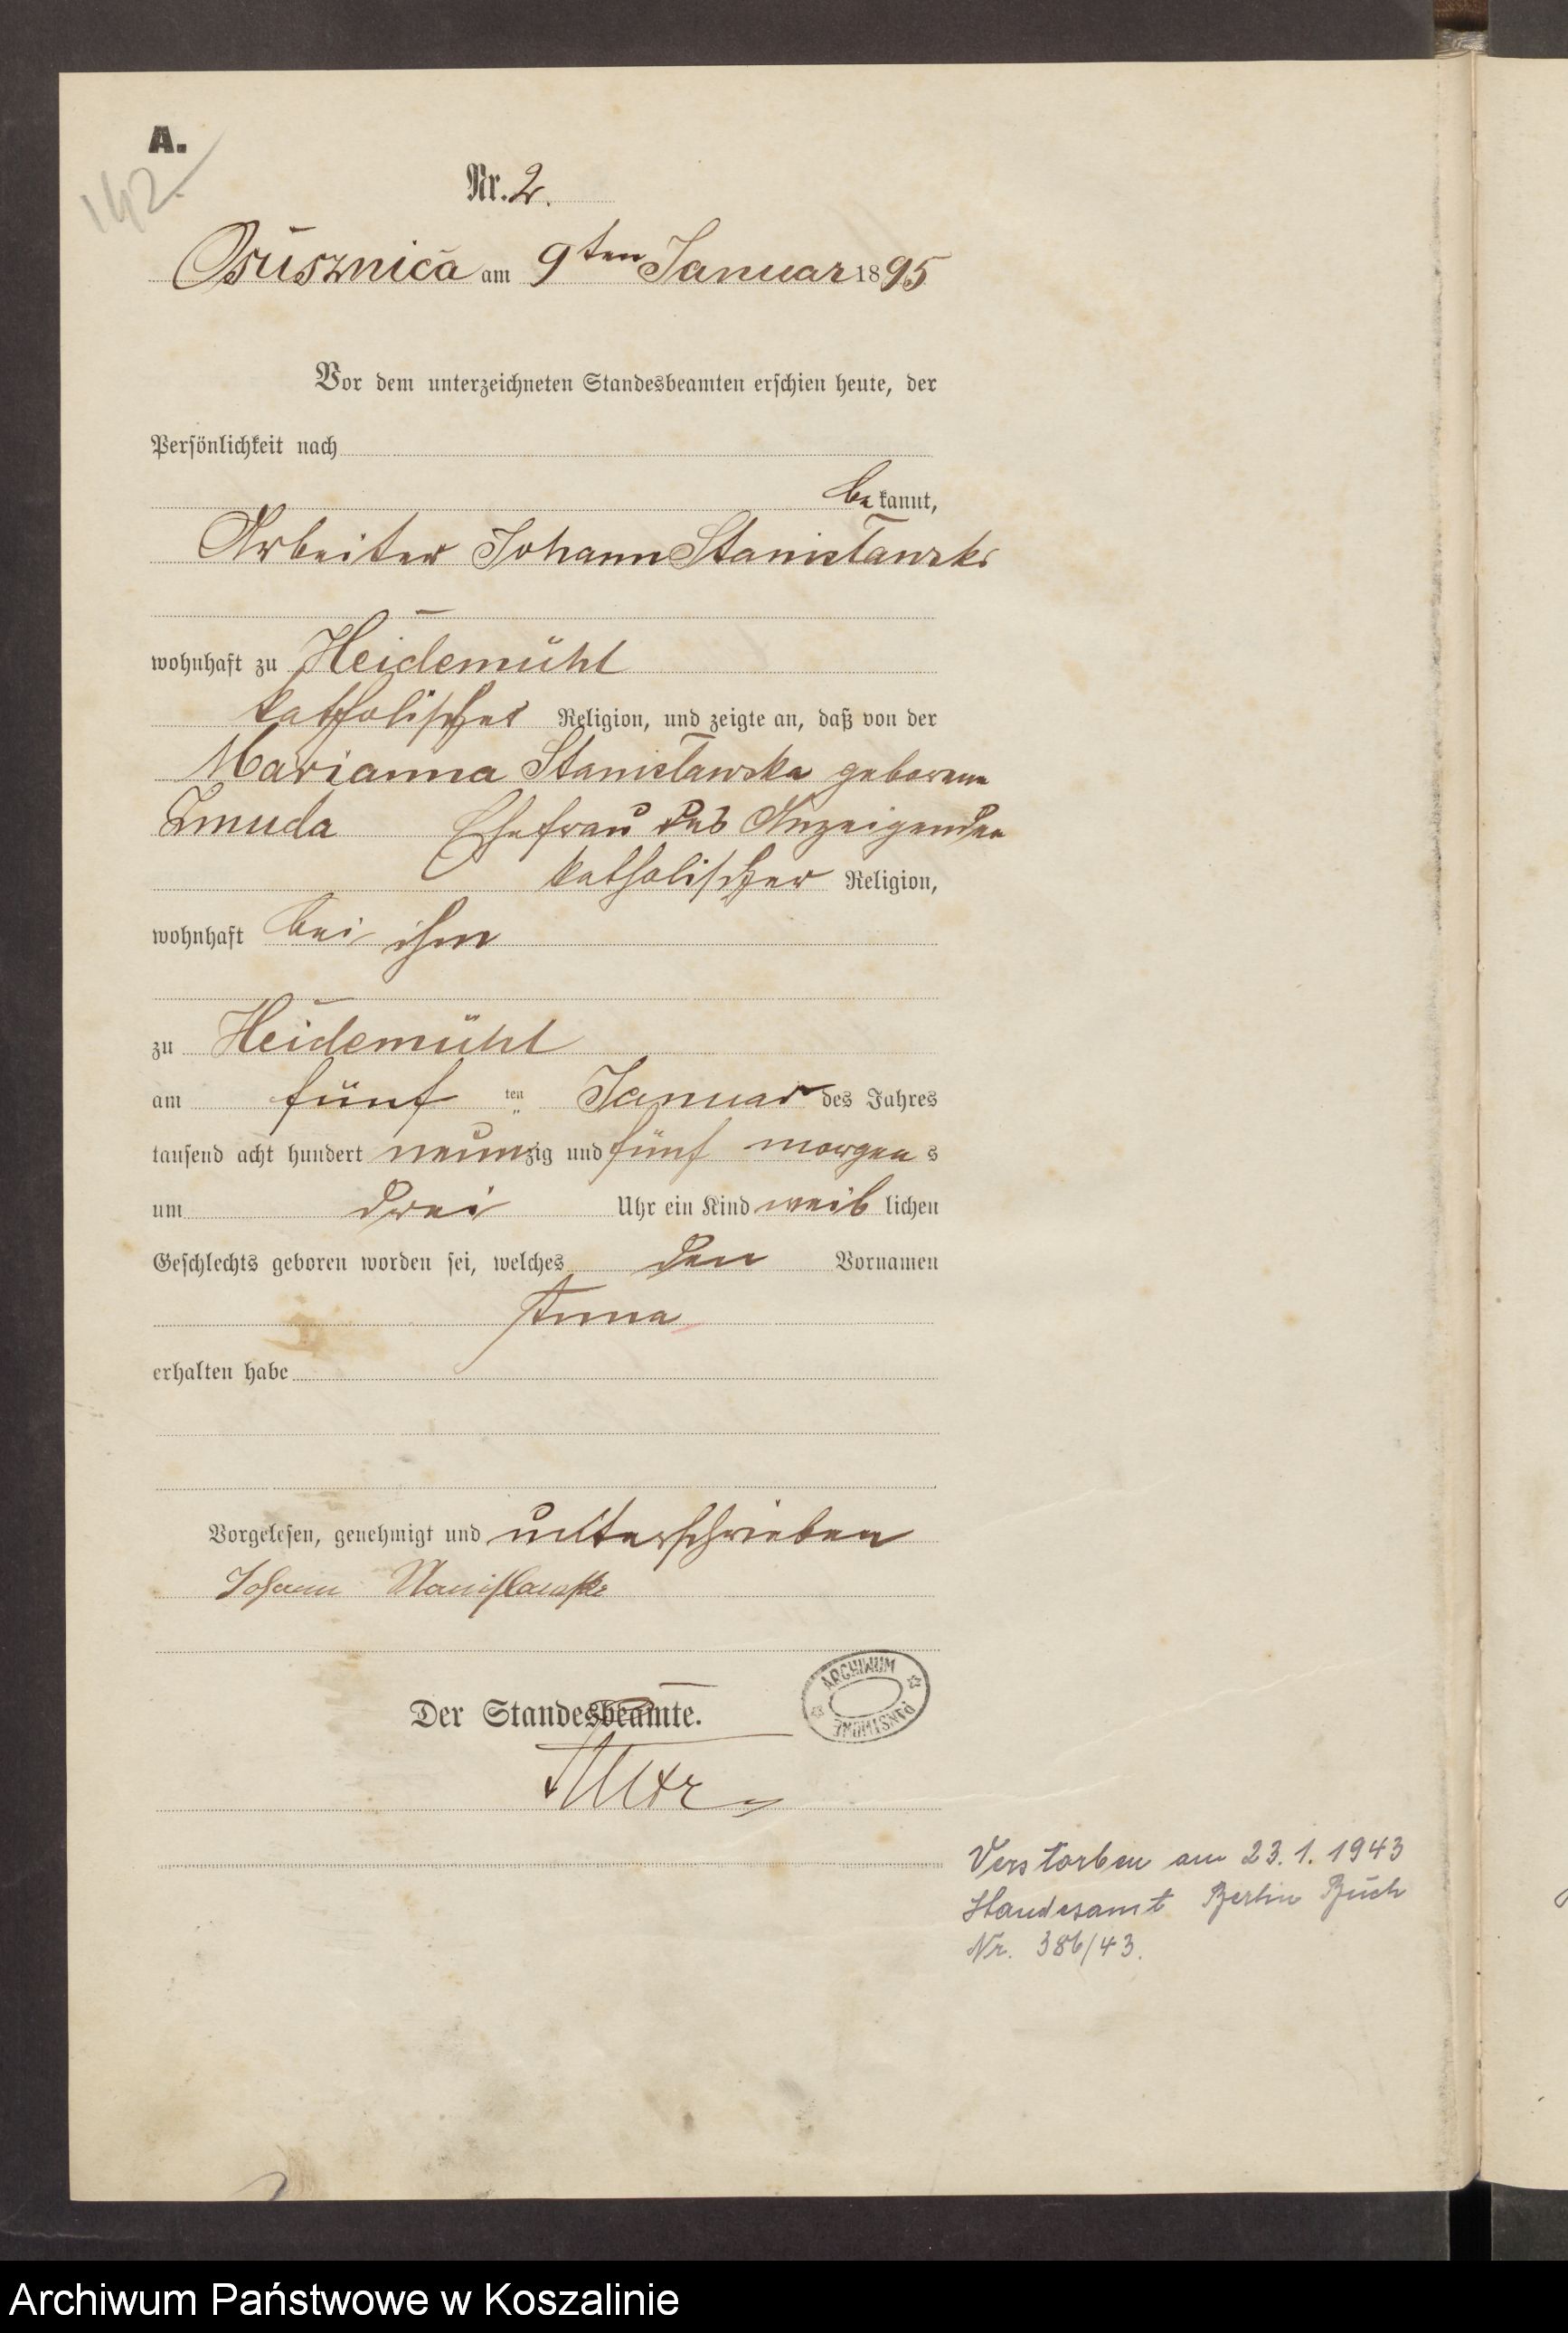 A.
142.
Nr. 2.
Osusznica am 9ten Januar 1895
Vor dem unterzeichneten Standesbeamten erschien heute, der
Persönlichkeit nach
bekannt,
Arbeiter Johann Stanisławski
wohnhaft zu Heidemühl
katholischer Religion, und zeigte an, daß von der
Marianna Stanisławska geborene
Zmuda Ehefrau des Anzeigenden
katholischer Religion,
wohnhaft bei ihm
zu Heidemühl
am fünf ten Januar des Jahres
tausend acht hundert neunzig und fünf morgens
um drei Uhr ein Kind weiblichen
Geschlechts geboren worden sei, welches den Vornamen
Anna
erhalten habe
Vorgelesen, genehmigt und unterschrieben
Johann Stanislawski
Der Standesbeamte.
ARCHIWUM PAŃSTWOWE
Verstorben am 23.1.1943
Standesamt Berlin Buch
Nr. 386/43.
Archiwum Państwowe w Koszalinie